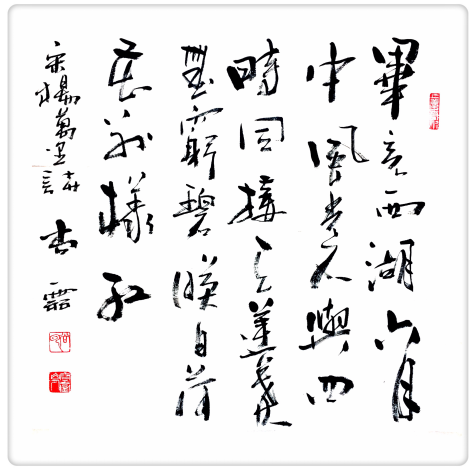 畢竟西湖六月
中風光不與四
時同接天蓮葉
無窮碧暎日荷
花別樣紅
宋楊萬里詩